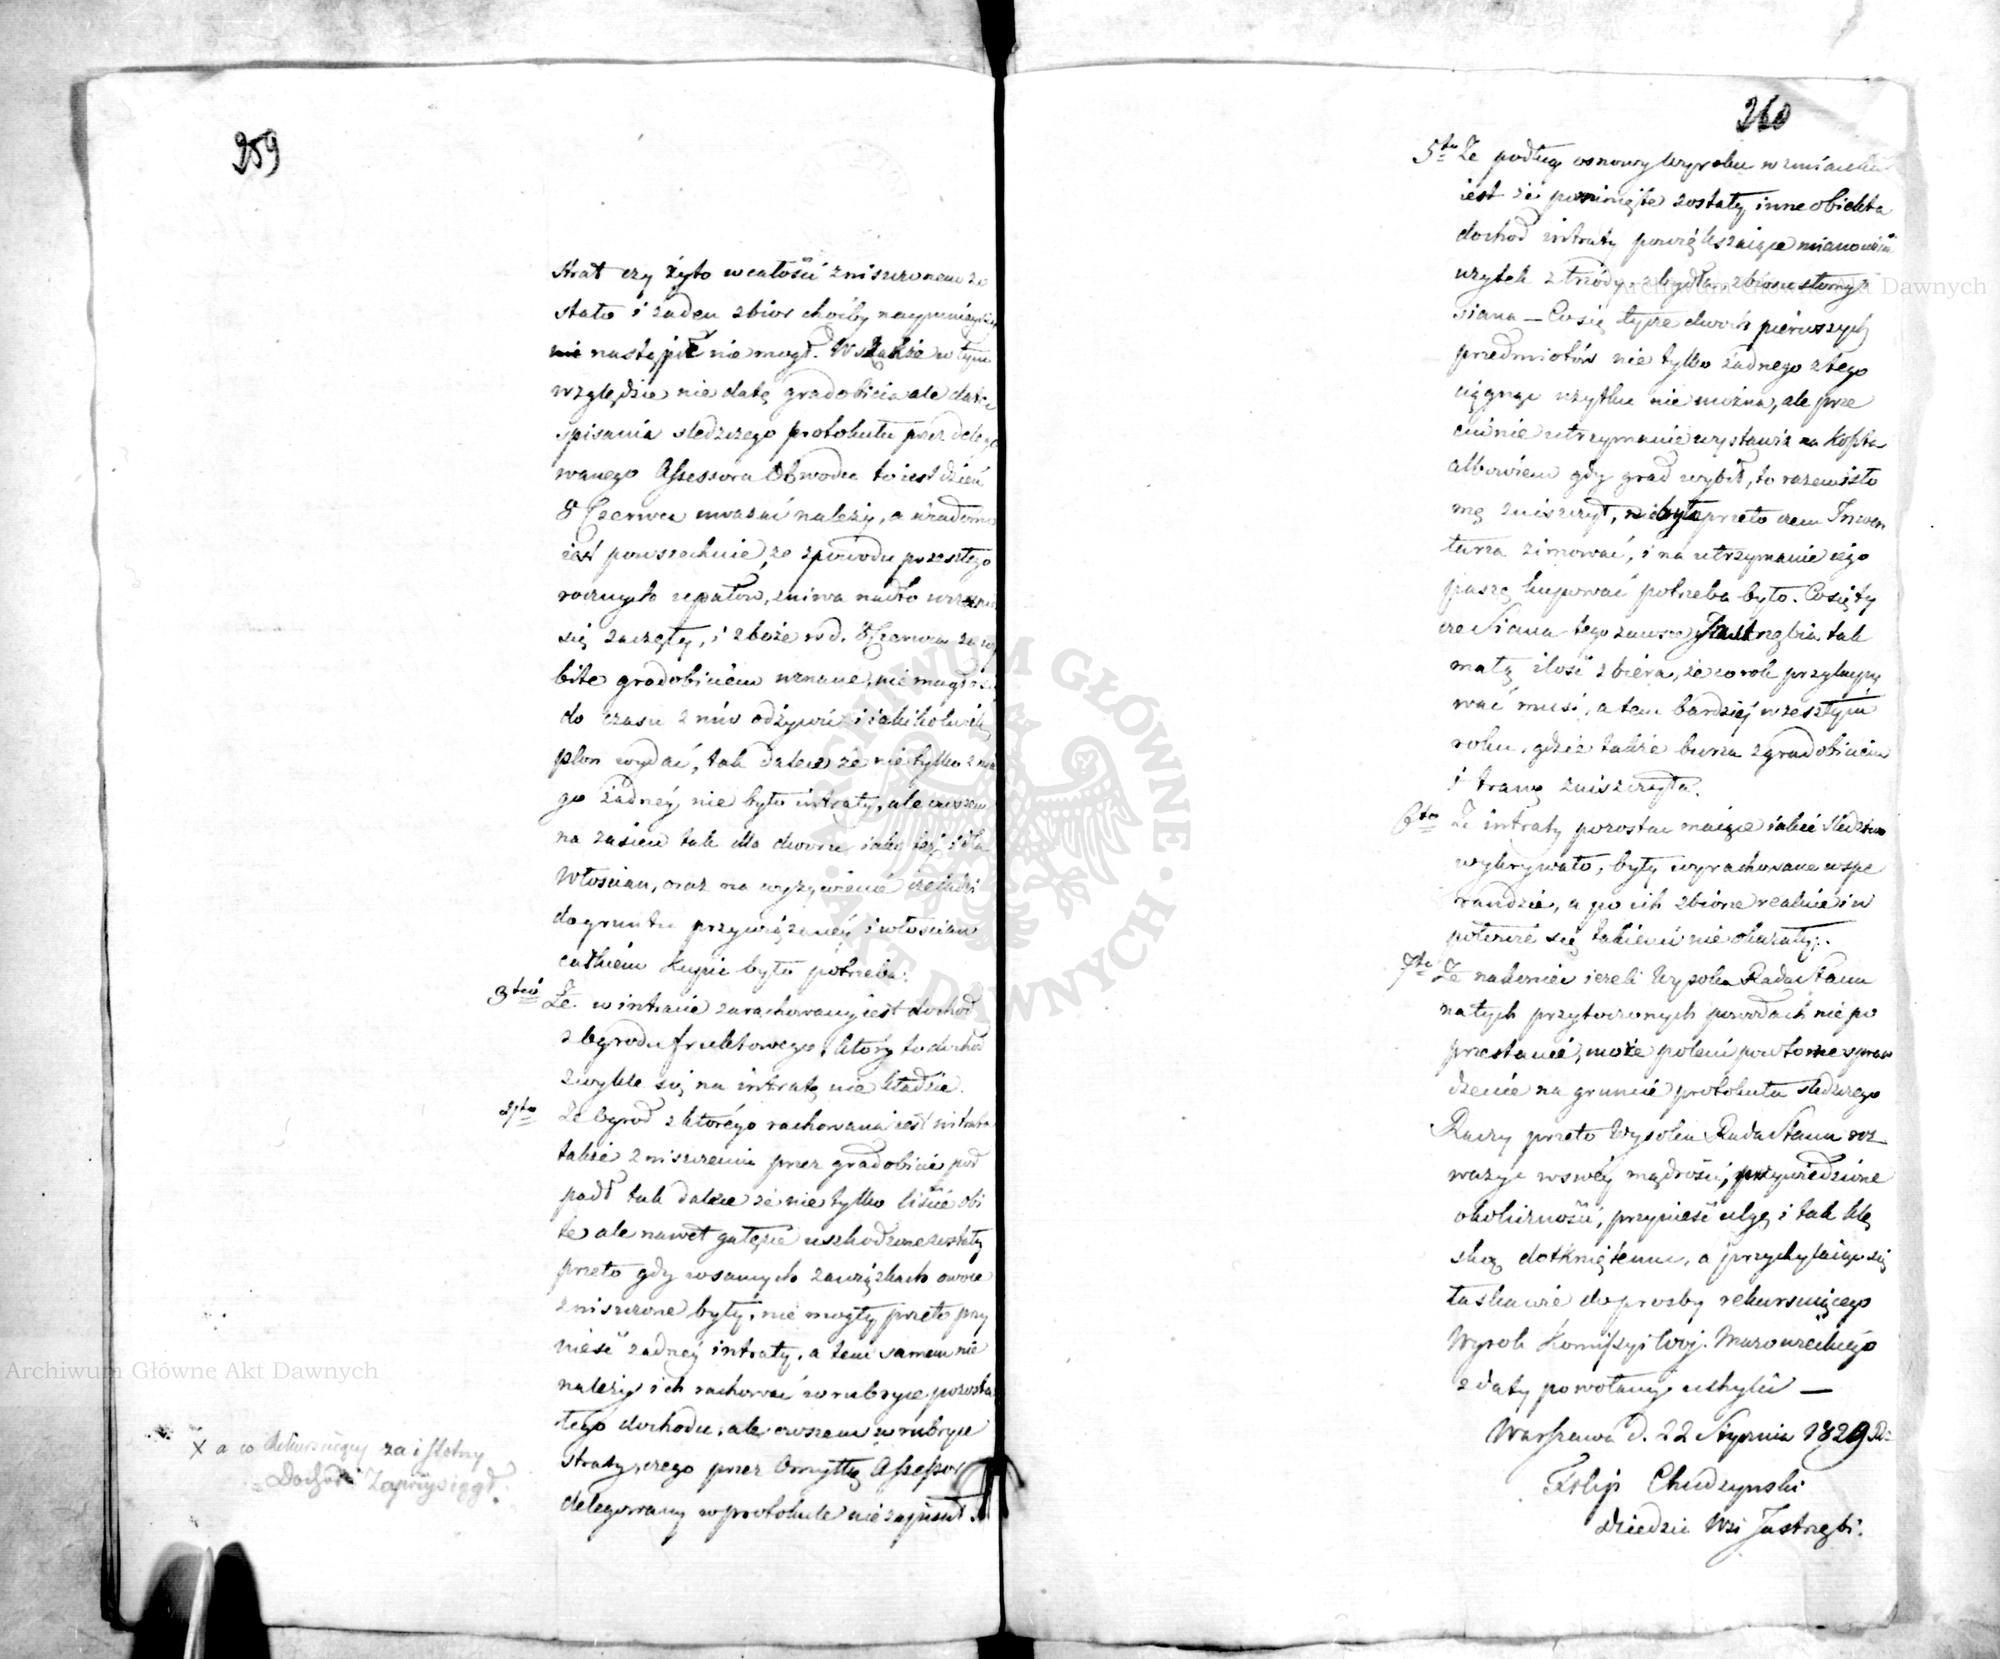 259
strat czy żyto w całości zniszczonem zo
stało i żaden zbiór choćby naymnieyszy
nastąpić nie mógł. Wszakże w tym
względzie nie datę gradobicia ale datę
spisania śledczego protokułu przez delego
wanego Assessora Obwodu to iest dzień
8 Czerwca uważać należy, a wiadomo
iest powszechnie, że z powodu przeszło
rocznych upałów, żniwa nadto wcześnie
się zaczęły, i zboże w d. 8 Czerwca za wy
bite gradobiciem uznane, nie mogło się
do czasu żniw odżywić i jakikolwiek
plon wydać, tak dalece że nie tylko z nie
go żadney nie było intraty, ale owszem
na zasiew tak dla dworu iako też i dla
Włościan, oraz na wyżywienie czeladzi
do gruntu przywiązaney i włościan
całkiem kupić było potrzeba.
3tio Że w intracie zarachowany iest dochód
z ogrodu fruktowego, który to dochód
zwykle się na intratę nie kładzie.
4to Że ogród z którego rachowana iest intrata
także zniszczeniu przez gradobicie pod
padł tak dalece że nie tylko liście obi
te ale nawet gałęzie uszkodzone zostały
przeto gdy w samych zawiązkach owoce
zniszczone były, nie mogły przeto przy
nieść żadney intraty, a tem samem nie
należy ich rachować w rubryce pozosta
łego dochodu, ale owszem w rubryce
straty, czego przez omyłkę Assessor
delegowany w protokule nie zapisał.
X a co Rekursuiący za istotny
Dochód Zaprzysiągł.
260
5to Że podług osnowy Wyroku wzmianka
iest że pominięte zostały inne obiekta
dochód intraty powiększaiące mianowicie
użytek z trzody, z bydła, zbioru słomy i
siana — Co się tycze dwóch pierwszych
przedmiotów nie tylko żadnego z tego
ciągnąć użytku nie można, ale prze
ciwnie utrzymanie wystawia na koszta
albowiem gdy grad wybił, to razem i sło
mę zniszczył, nie było przeto czem Inwen
tarza zimować, i na utrzymanie iego
paszę kupować potrzeba było. Co się ty
cze Siana tego zawsze Jastrzębia tak
małą ilość zbiera, że co rok przykupy
wać musi, a tem bardziej w zeszłym
roku, gdzie także burza z gradobiciem
i trawę zniszczyła.
6to Że intraty pozostać maiące iakie śledztwo
wykrywało, były wyrachowane w spe
randzie, a po ich zbiorze realnie i w
potrzebie się takiemi nie okazały.
7mo Że nakoniec ieżeli Wysoka Rada Stanu
na tych przytoczonych powodach nie po
przestanie, może polecić powtorne spraw
dzenie na gruncie protokułu śledczego
Raczy przeto Wysoka Rada Stanu roz
ważyć w swéy mądrości, przywiedzione
okoliczności, przynieść ulgę i tak klę
ską dotkniętemu, a przychylaiąc się
łaskawie do prośby rekursuiącego
Wyrok Kommissyi Woj. Mazowieckiego
z daty powołaney uchylić —
Warszawa d. 22 Stycznia 1829 R.
Filip Chudzynski
Dziedzic Wsi Jastrzębi.